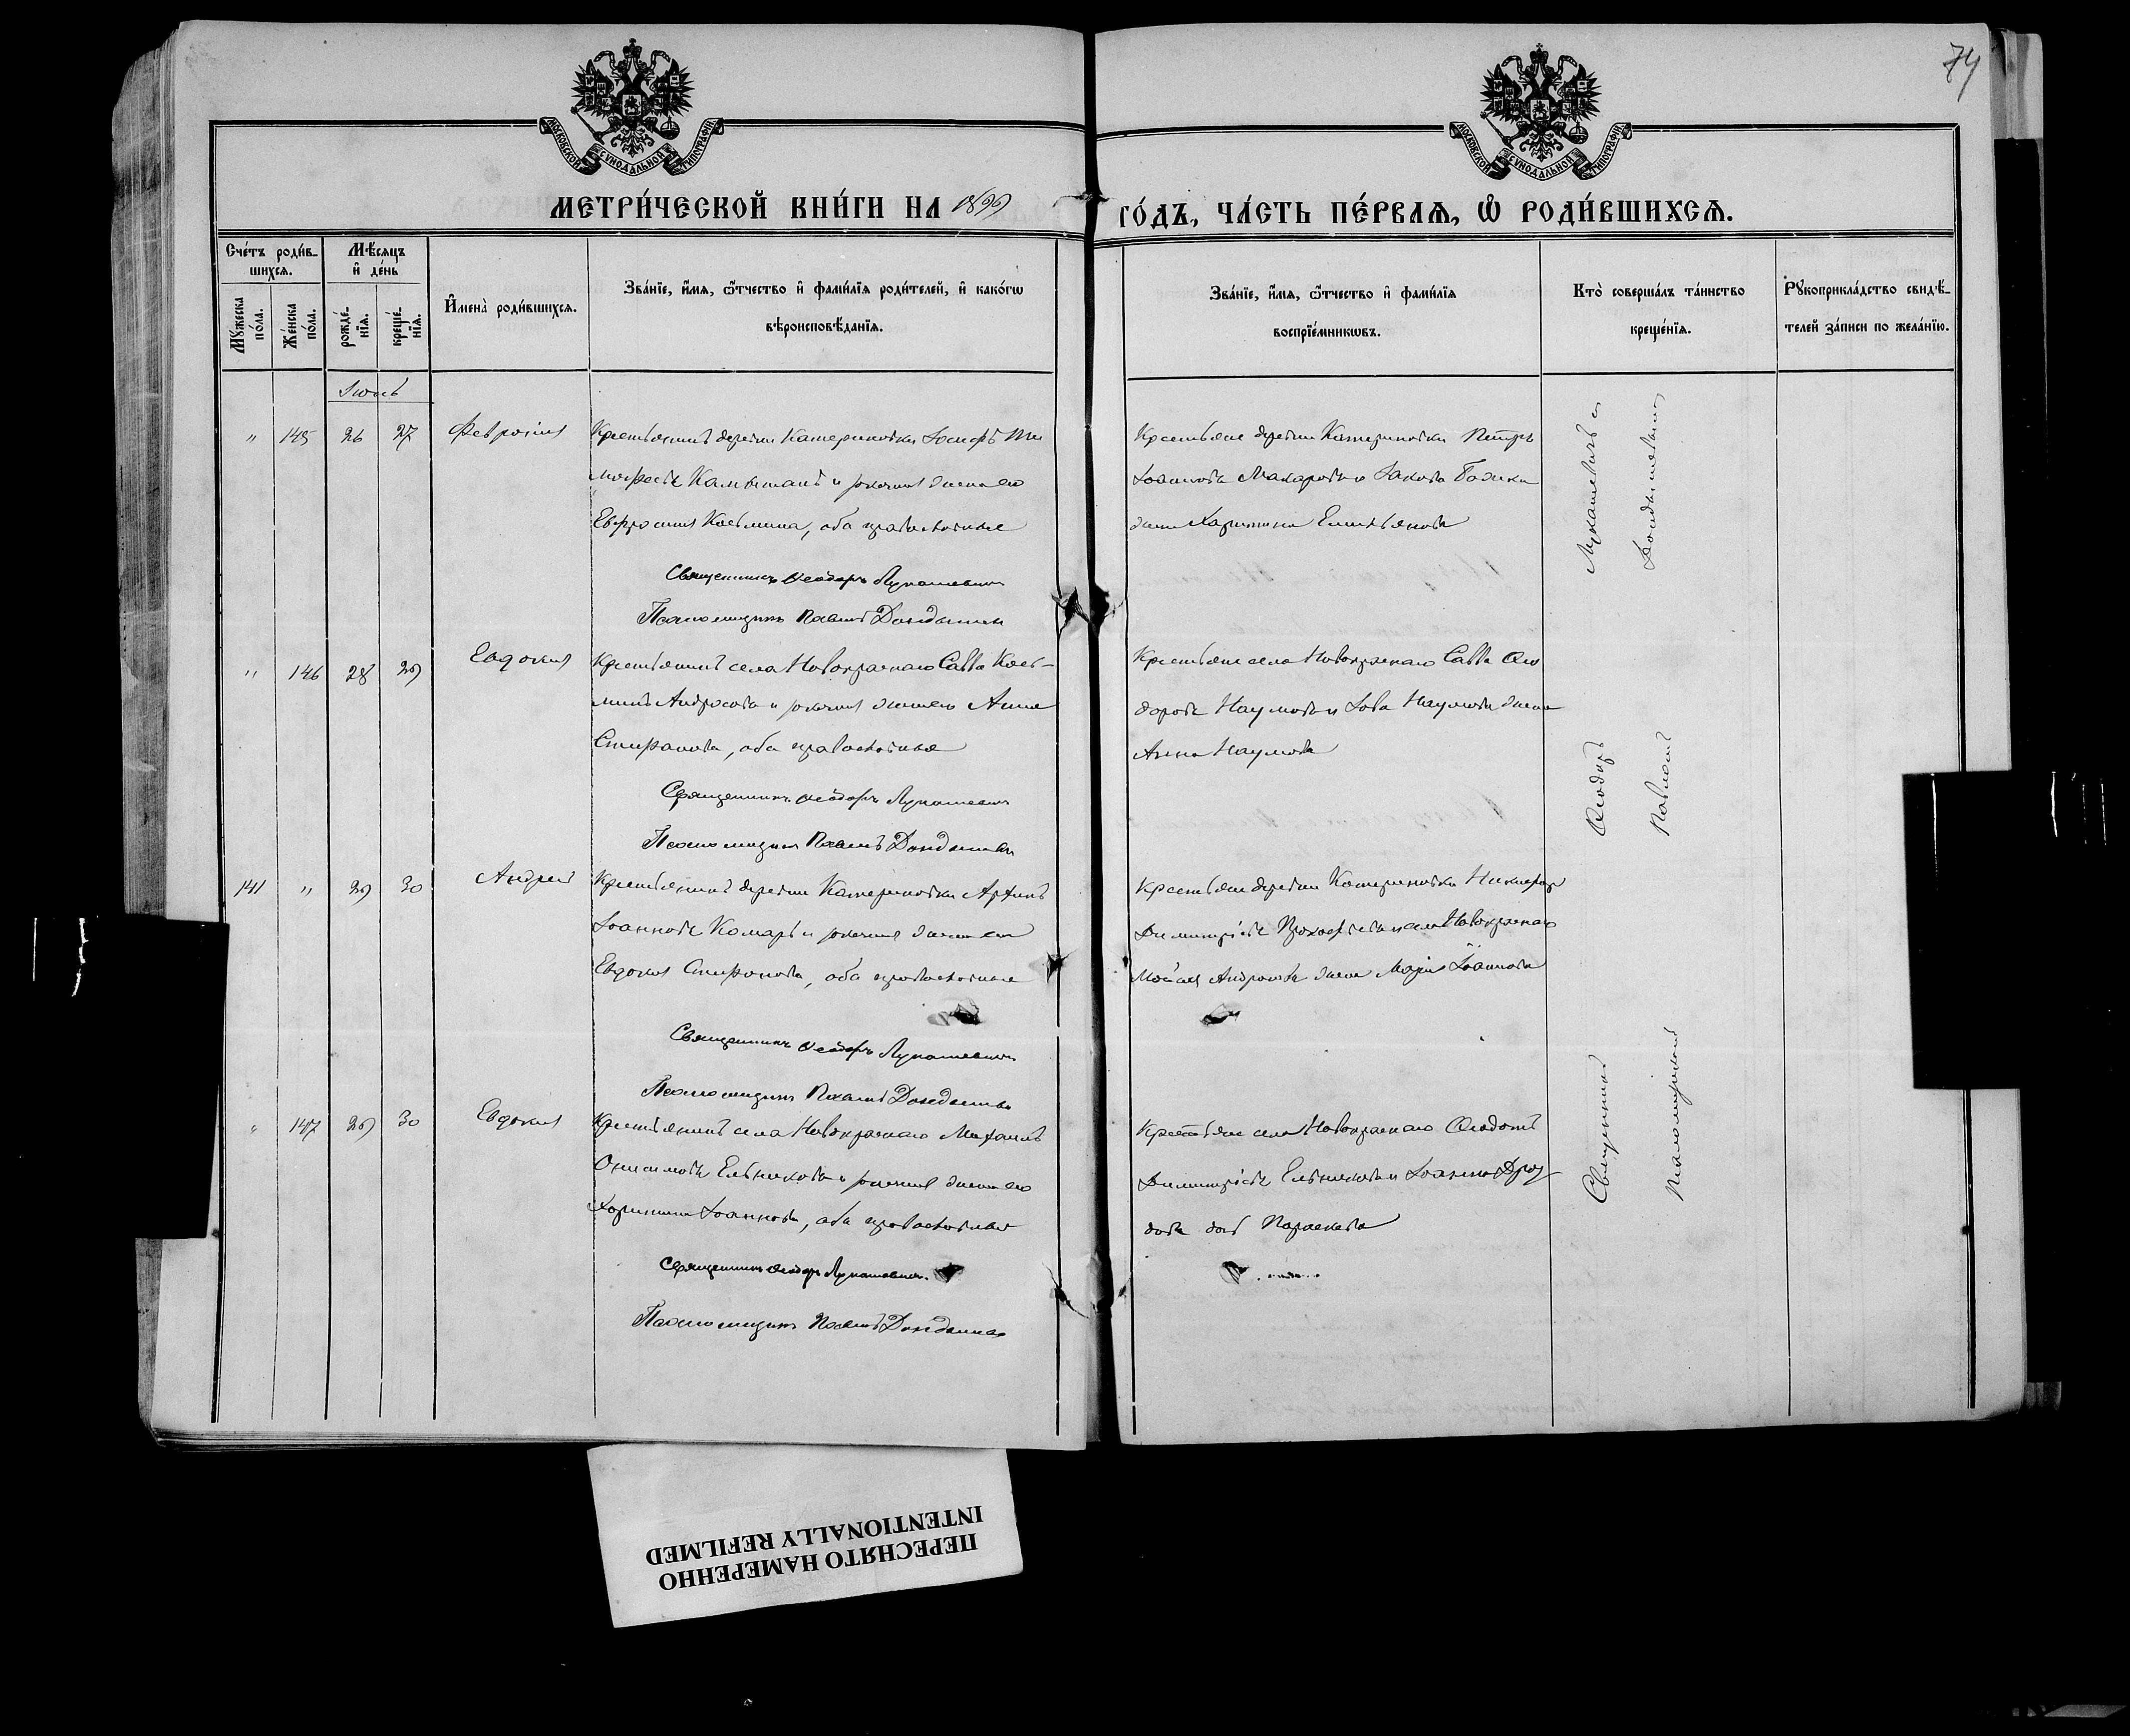 74
МОСКОВСКОЙ СѴНОДАЛЬНОЙ ТИПОГРАФІИ
МОСКОВСКОЙ СѴНОДАЛЬНОЙ ТИПОГРАФІИ
МЕТРИ́ЧЕСКОЙ КНИ́ГИ НА 1899
ГО́ДЪ, ЧА́СТЬ ПЕ́РВАѦ, Ѽ РОДИ́ВШИХСѦ.
Сче́тъ роди́в-
шихсѧ.
Мꙋ́жеска по́ла.
Же́нска по́ла.
Мѣ́сѧцъ
и҆ де́нь
рожде́-
нїѧ.
креще́-
нїѧ.
И҆мена̀ роди́вшихсѧ.
Зва́нїе, и҆́мѧ, ѻ҆́тчество и҆ фами́лїѧ роди́телей, и҆ како́гѡ
вѣроисповѣ́данїѧ.
Зва́нїе, и҆́мѧ, ѻ҆́тчество и҆ фами́лїѧ
воспрїе́мникѡвъ.
Кто̀ соверша́лъ та́инство
креще́нїѧ.
Рꙋкоприкла́дство свидѣ́-
телей за́писи по жела́нїю.
" 145 26 27 Февронія
Крестьянинъ деревни Катериновки Іосифъ Ти
мофеевъ и законная жена его
Евфросинія Косьмина, оба православные
Священникъ Ѳеодоръ Лукашевичъ
Псаломщикъ Павелъ
Крестьяне деревни Катериновки Петръ
Іоанновъ Макаровъ и Іакова
жена Харитина Емельянова
" 146 28 29 Евдокія
Крестьянинъ села Новокраснаго Савва Кось-
минъ Андросовъ и законная жена его Анна
Стефанова, оба православные
Священникъ Ѳеодоръ Лукашевичъ
Псаломщикъ Павелъ
Крестьяне села Новокраснаго Савва Ѳео
доровъ Наумовъ и Наумова жена
Анна Наумова
141 " 29 30 Андрей
Крестьянинъ деревни Катериновки
Іоанновъ Комаръ и законная жена его
Евдокія Стефанова, оба православные
Священникъ Ѳеодоръ Лукашевичъ
Псаломщикъ Павелъ
Крестьяне деревни Катериновки Никифоръ
Димитріевъ и села Новокраснаго
Моисея жена Марія Іоаннова
" 147 29 30 Евдокія
Крестьянинъ села Новокраснаго Михаилъ
Онисимовъ Ельниковъ и законная жена его
Харитина Іоаннова, оба православные
Священникъ Ѳеодоръ Лукашевичъ
Псаломщикъ Павелъ
Крестьяне села Новокраснаго Ѳеодотъ
Димитріевъ Ельниковъ и Іоанна Дроз
дова дочь Параскева
Священникъ Ѳеодоръ Лукашевичъ и
Псаломщикъ Павелъ
ПЕРЕСНЯТО НАМЕРЕННО
INTENTIONALLY REFILMED